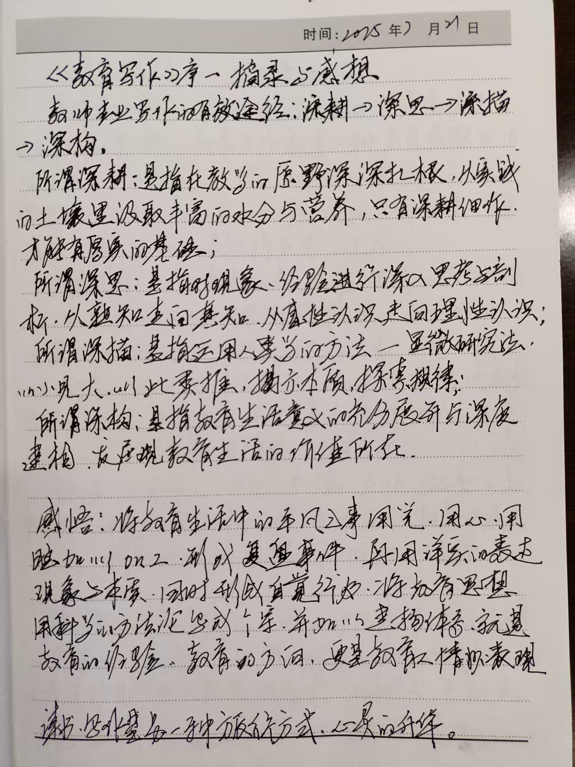 时间：2025年7月21日
《教育写作》序一摘录与感想
教师专业写作的有效途经：深耕→深思→深描
→深构。
所谓深耕：是指在教学的原野深深扎根，从实践
的土壤里汲取丰富的水分与营养，只有深耕细作，
才能有厚实的基础；
所谓深思：是指对现象、经验进行深入思考与剖
析，从熟知走向真知，从感性认识走向理性认识；
所谓深描：是指运用人类学的方法—显微研究法，
以小见大，以此类推，揭示本质，探寻规律；
所谓深构：是指教育生活意义的充分展开与深度
建构，发现教育生活的价值所在。
感悟：将教育生活中的平凡之事用笔、用心、用
加以加工，形成事件，再用详实的表达
现象与本质，同时形成自觉行为，将教育思想
用科学的方法论形成个案，并加以
教育的经验，教育的方向，更是教育人情怀表现
读书、写作是另一种中方式，心灵的升华。